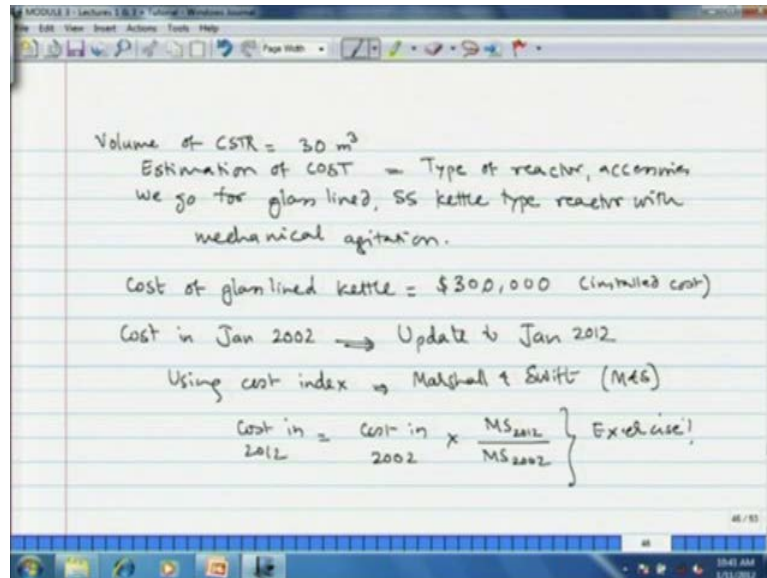 MODULE 3 - Lectures 1 & 3 + Tutorial - Windows Journal
File Edit View Insert Actions Tools Help
Page Width
Volume of CSTR = 30 m³
Estimation of COST = Type of reactor, accessories
We go for glass lined, SS kettle type reactor with
mechanical agitation.
Cost of glass lined kettle = $300,000 (installed cost)
Cost in Jan 2002 ⟹ Update to Jan 2012
Using cost index ⇒ Marshall & Swift (M&S)
Cost in 2012 = Cost in 2002 × MS2012 / MS2002 } Exercise!
46 / 53
46
10:41 AM
1/11/2012